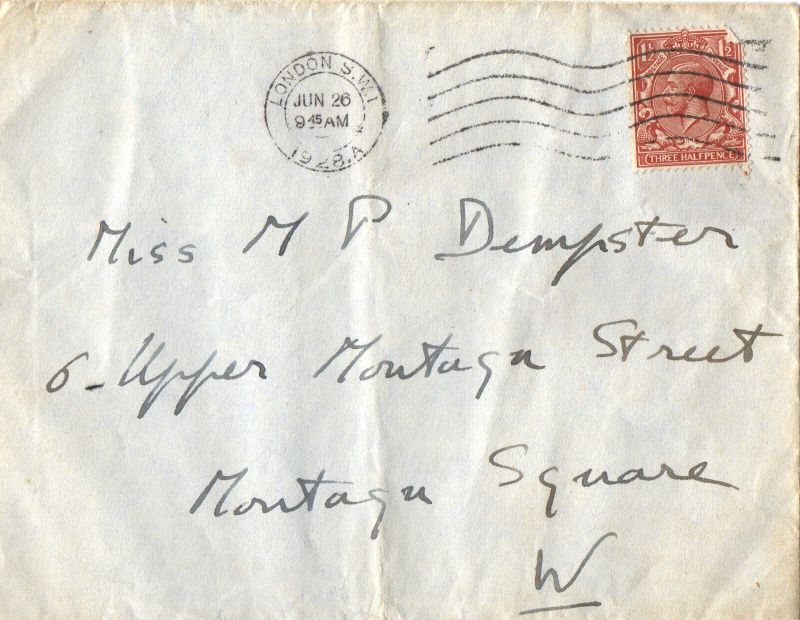 LONDON S.W.1
JUN 26
9 45 AM
1928.A
1½ 1½
THREE HALFPENCE
Miss M P Dempster
6 - Upper Montagu Street
Montagu Square
W